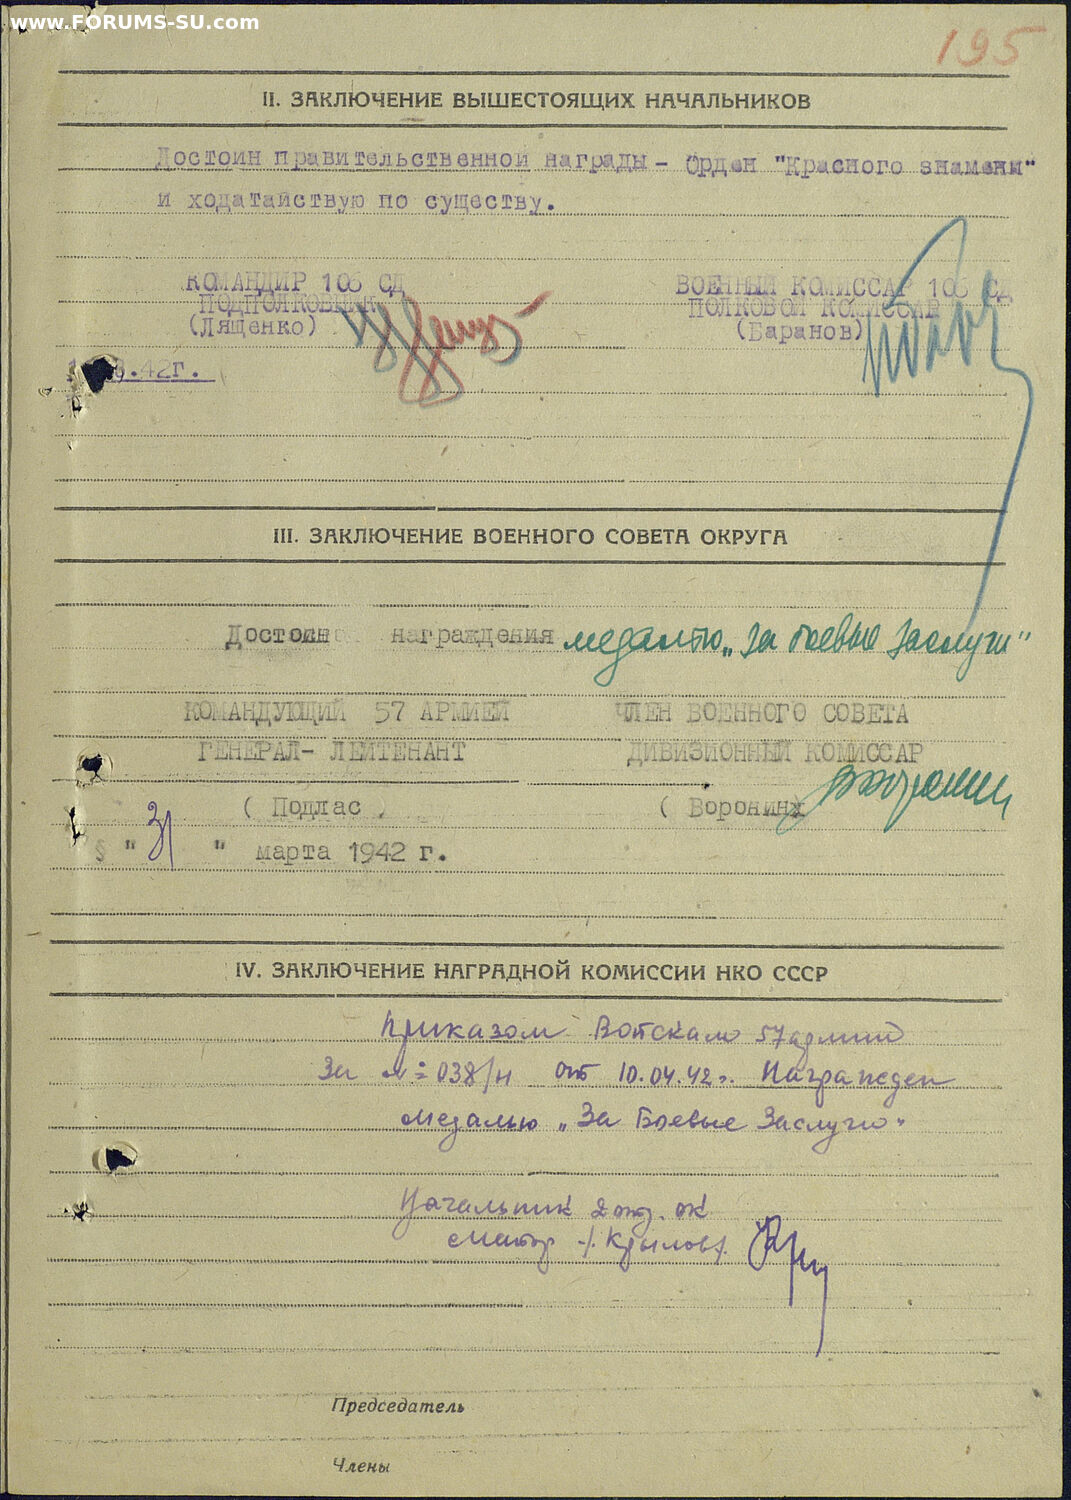 www.FORUMS-SU.com
195
II. ЗАКЛЮЧЕНИЕ ВЫШЕСТОЯЩИХ НАЧАЛЬНИКОВ
Достоин правительственной награды - Орден "Красного знамены"
и ходатайствую по существу.
КОМАНДИР 106 СД
ПОДПОЛКОВНИК
(Лященко)
ВОЕННЫЙ КОМИССАР 106 СД
ПОЛКОВОЙ КОМИССАР
(Баранов)
.42г.
III. ЗАКЛЮЧЕНИЕ ВОЕННОГО СОВЕТА ОКРУГА
Достоин награждения медалью „За боевые заслуги"
КОМАНДУЮЩИЙ 57 АРМИЕЙ
ГЕНЕРАЛ- ЛЕЙТЕНАНТ
( Подлас )
ЧЛЕН ВОЕННОГО СОВЕТА
ДИВИЗИОННЫЙ КОМИССАР
( Воронин)
" 31 " марта 1942 г.
IV. ЗАКЛЮЧЕНИЕ НАГРАДНОЙ КОМИССИИ НКО СССР
Приказом Войскам 57 армии
За № 038/н от 10.04.42г. Награжден
медалью „За Боевые Заслуги"
Начальник 2 отд. ОК
майор /Крылов/
Председатель
Члены